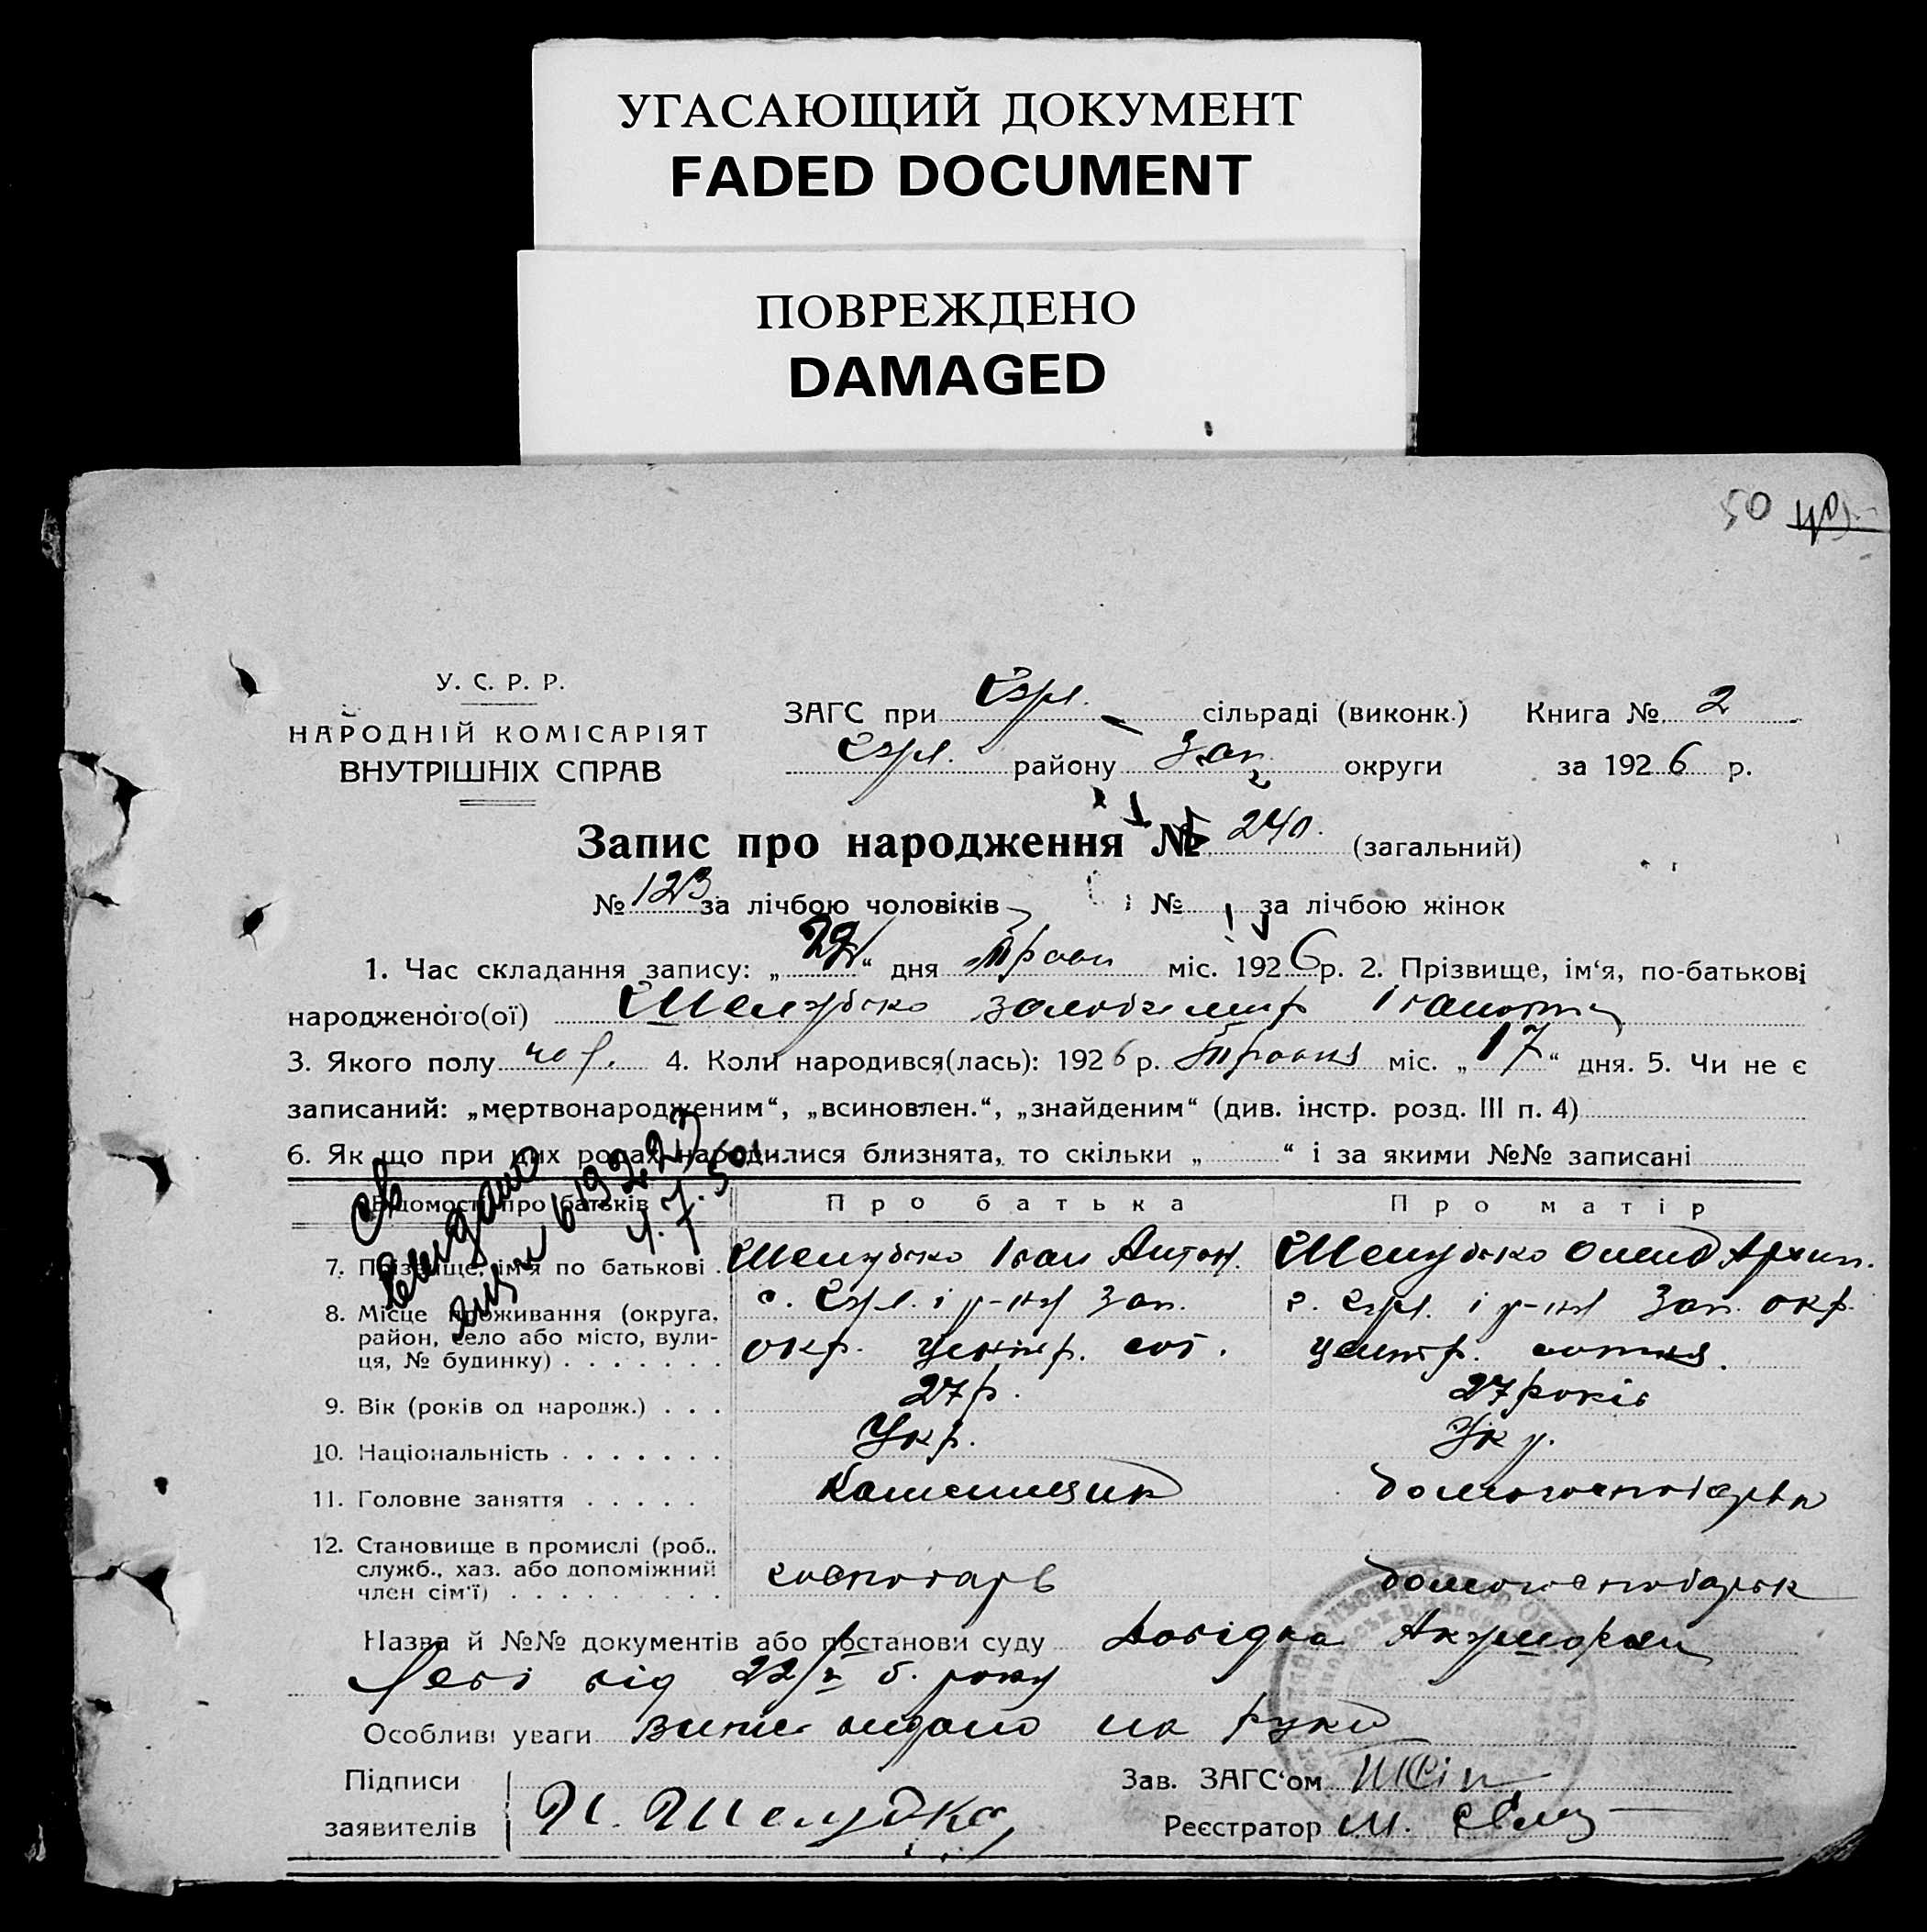 УГАСАЮЩИЙ ДОКУМЕНТ
FADED DOCUMENT
ПОВРЕЖДЕНО
DAMAGED
50
У. С. Р. Р.
НАРОДНІЙ КОМІСАРІЯТ
ВНУТРІШНІХ СПРАВ
ЗАГС при сільраді (виконк.) Книга № 2
району Зап. округи за 1926 р.
Запис про народження № 240. (загальний)
№ 123 за лічбою чоловіків і № за лічбою жінок
1. Час складання запису: „ “ дня міс. 1926 р. 2. Прізвище, ім‘я, по-батькові
народженого(ої) Шелудько
3. Якого полу чол. 4. Коли народився(лась): 1926 р. Травня міс. „ 17 “ дня. 5. Чи не є
записаний: „мертвонародженим“, „всиновлен.“, „знайденим“ (див. інстр. розд. III п. 4)
6. Як що при цих родах народилися близнята, то скільки „ “ і за якими №№ записані
Відомості про батьків Про батька Про матір
7. Прізвище, ім‘я по батькові . Шелудько Іван Антон. Шелудько Архип.
8. Місце проживання (округа, с. і р-ну Зап. с. і р-ну Зап. окр.
район, село або місто, вули-
ця, № будинку) . . . . . . . окр. центр. сот. центр. сотня.
9. Вік (років од народж.) . . . 27 р. 27 років
10. Національність . . . . . . . Укр. Укр.
11. Головне заняття . . . . . домогосподарка
12. Становище в промислі (роб.,
служб., хаз. або допоміжний
член сім‘ї) . . . . . . . . . господарь домогосподарк
Назва й №№ документів або постанови суду Довідка
від 22/ б. року
Особливі уваги видано на руки
Підписи Зав. ЗАГС‘ом
заявителів И. Шелудко Реєстратор М.